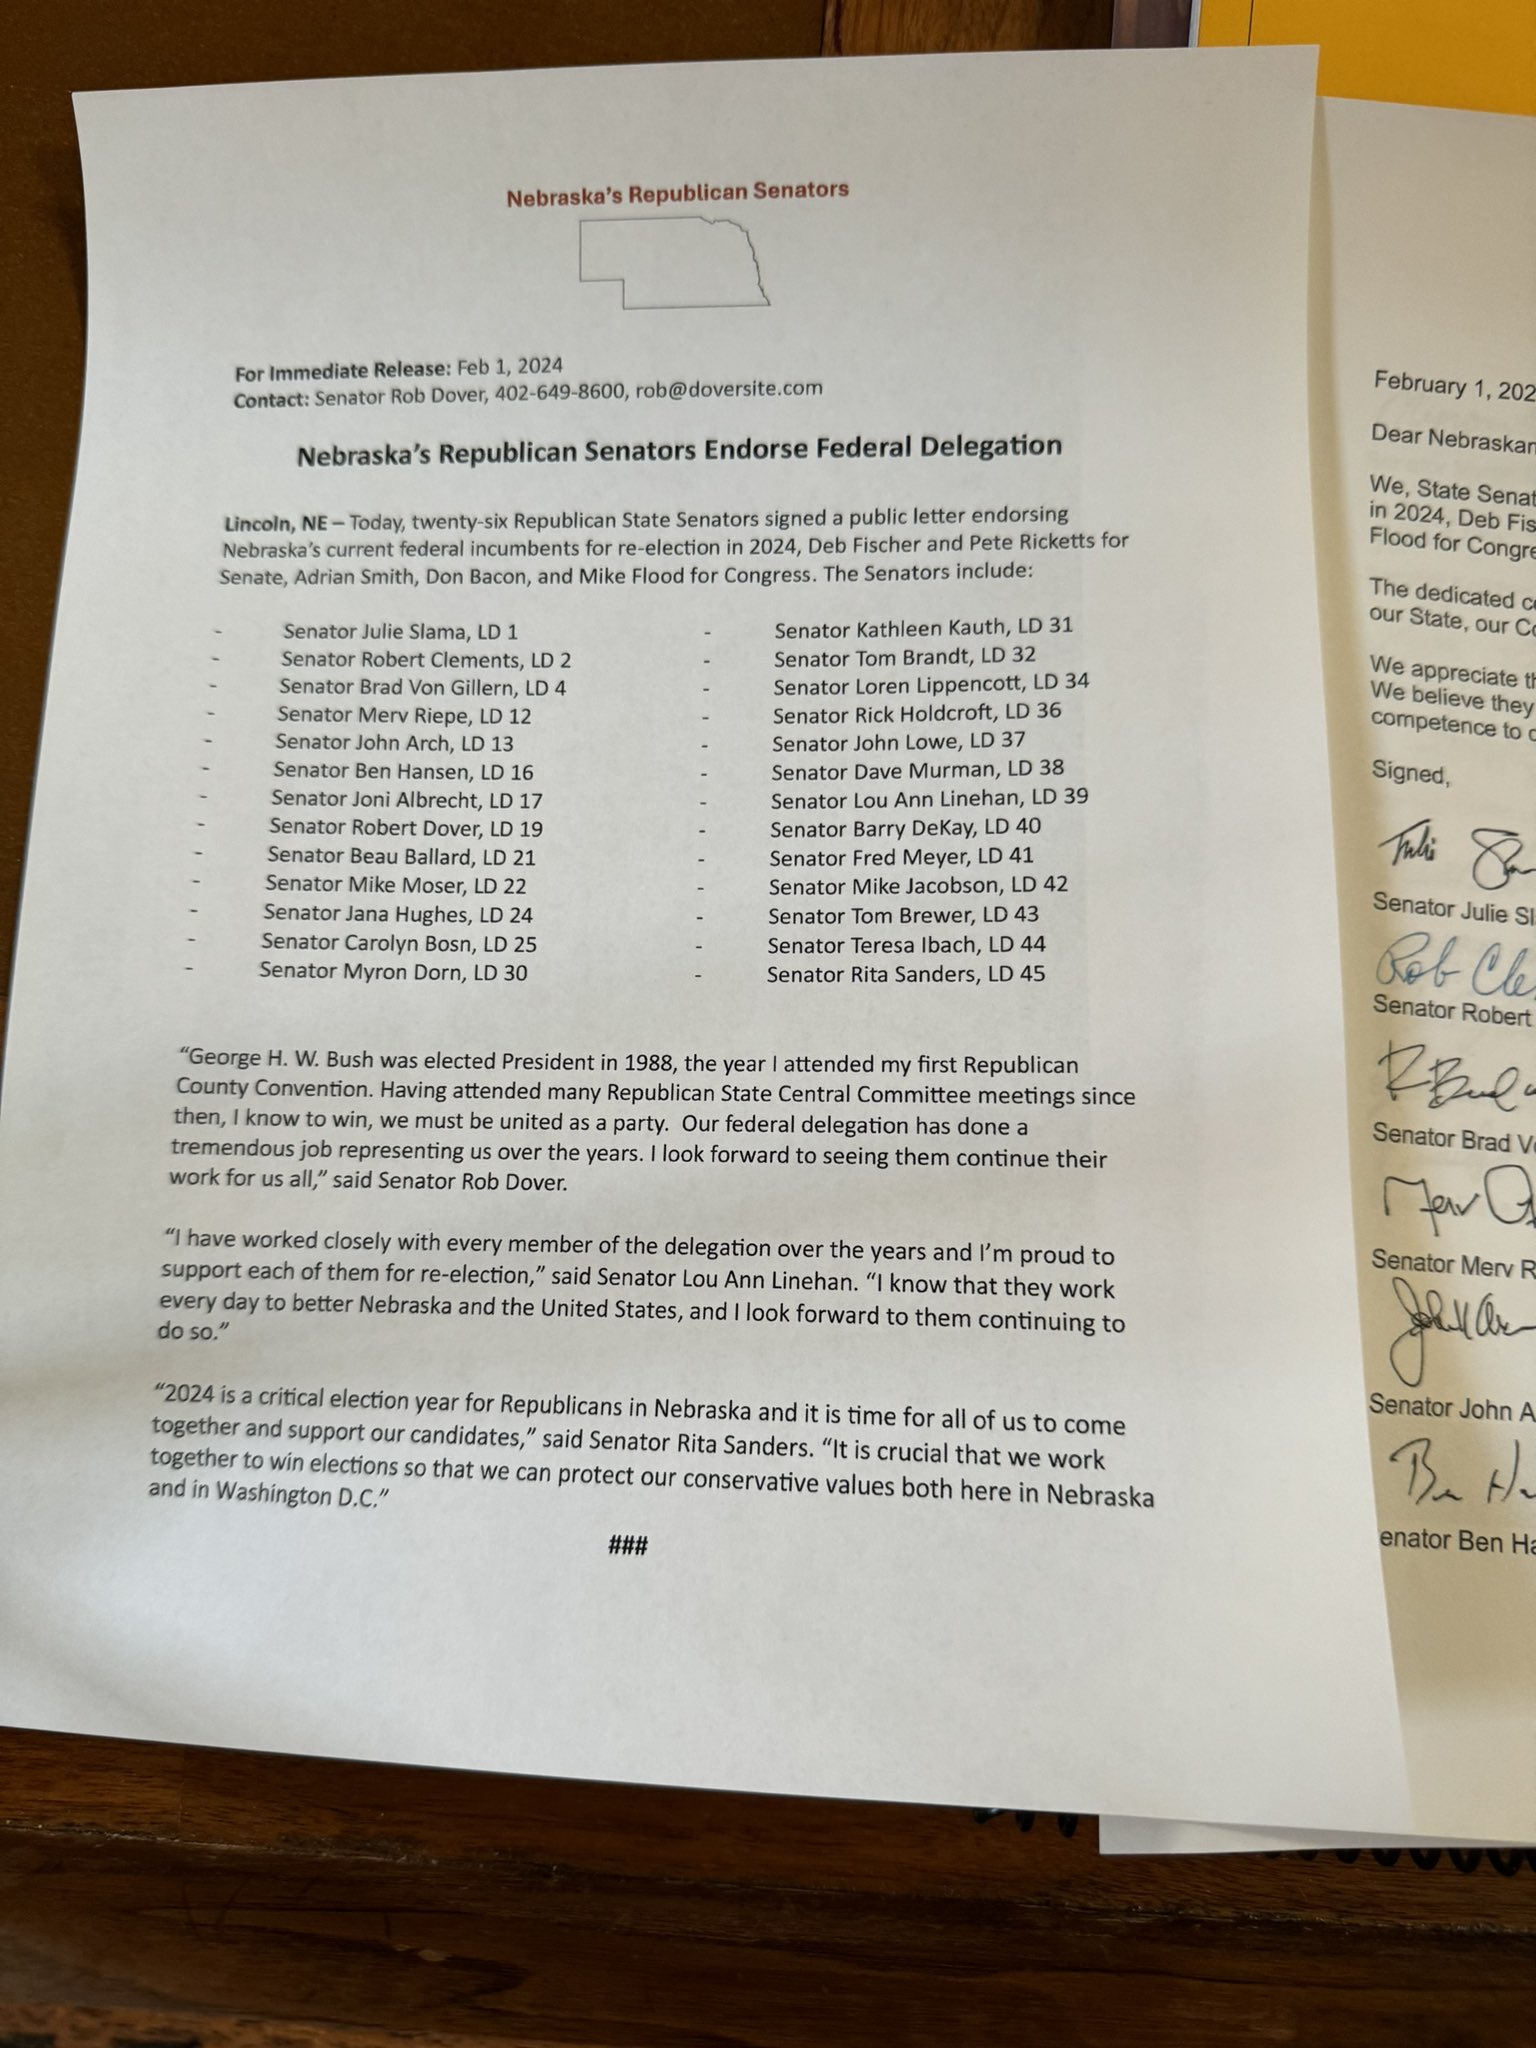 Nebraska's Republican Senators
For Immediate Release: Feb 1, 2024
Contact: Senator Rob Dover, 402-649-8600, rob@doversite.com
Nebraska's Republican Senators Endorse Federal Delegation
Lincoln, NE – Today, twenty-six Republican State Senators signed a public letter endorsing
Nebraska's current federal incumbents for re-election in 2024, Deb Fischer and Pete Ricketts for
Senate, Adrian Smith, Don Bacon, and Mike Flood for Congress. The Senators include:
- Senator Julie Slama, LD 1
- Senator Robert Clements, LD 2
- Senator Brad Von Gillern, LD 4
- Senator Merv Riepe, LD 12
- Senator John Arch, LD 13
- Senator Ben Hansen, LD 16
- Senator Joni Albrecht, LD 17
- Senator Robert Dover, LD 19
- Senator Beau Ballard, LD 21
- Senator Mike Moser, LD 22
- Senator Jana Hughes, LD 24
- Senator Carolyn Bosn, LD 25
- Senator Myron Dorn, LD 30
- Senator Kathleen Kauth, LD 31
- Senator Tom Brandt, LD 32
- Senator Loren Lippencott, LD 34
- Senator Rick Holdcroft, LD 36
- Senator John Lowe, LD 37
- Senator Dave Murman, LD 38
- Senator Lou Ann Linehan, LD 39
- Senator Barry DeKay, LD 40
- Senator Fred Meyer, LD 41
- Senator Mike Jacobson, LD 42
- Senator Tom Brewer, LD 43
- Senator Teresa Ibach, LD 44
- Senator Rita Sanders, LD 45
"George H. W. Bush was elected President in 1988, the year I attended my first Republican
County Convention. Having attended many Republican State Central Committee meetings since
then, I know to win, we must be united as a party. Our federal delegation has done a
tremendous job representing us over the years. I look forward to seeing them continue their
work for us all," said Senator Rob Dover.
"I have worked closely with every member of the delegation over the years and I'm proud to
support each of them for re-election," said Senator Lou Ann Linehan. "I know that they work
every day to better Nebraska and the United States, and I look forward to them continuing to
do so."
"2024 is a critical election year for Republicans in Nebraska and it is time for all of us to come
together and support our candidates," said Senator Rita Sanders. "It is crucial that we work
together to win elections so that we can protect our conservative values both here in Nebraska
and in Washington D.C."
###
February 1, 202
Dear Nebraskan
We, State Senat
in 2024, Deb Fis
Flood for Congre
The dedicated c
our State, our Co
We appreciate th
We believe they
competence to
Signed,
Julie
Senator Julie Sl
Rob Cle
Senator Robert
Senator Brad Vo
Merv
Senator Merv R
John
Senator John A
Ben Ha
enator Ben Ha